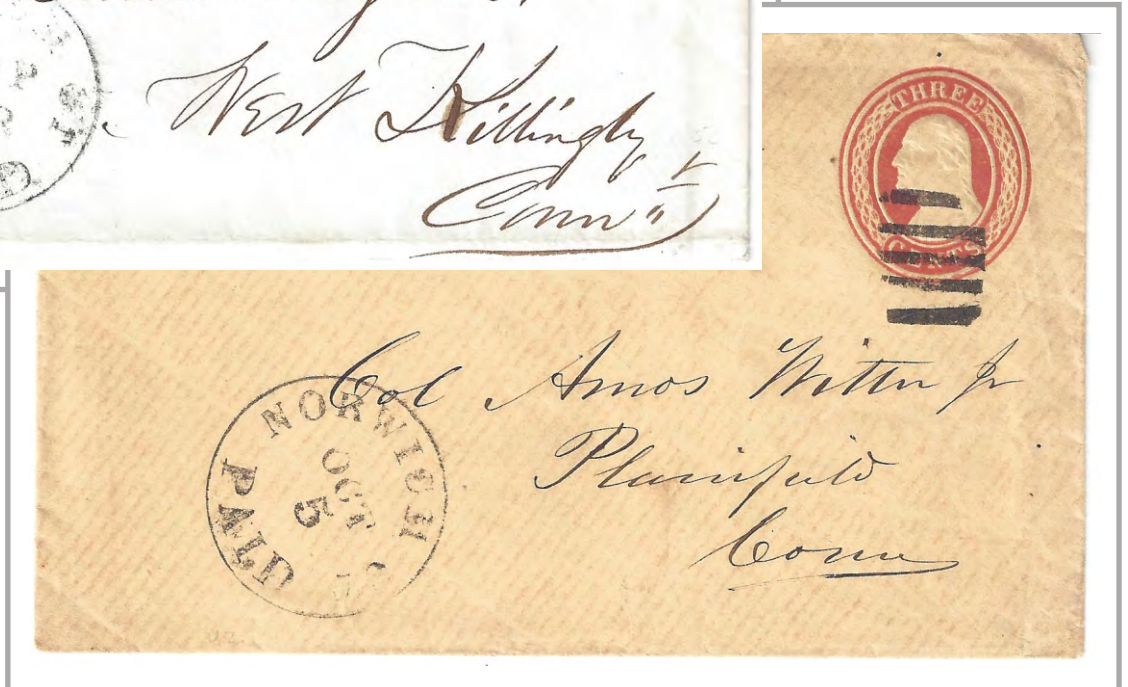 West Killingly
Conn
THREE
CENTS
Col Amos Witter Jr
Plainfield
Conn
NORWICH
OCT
5
PAID